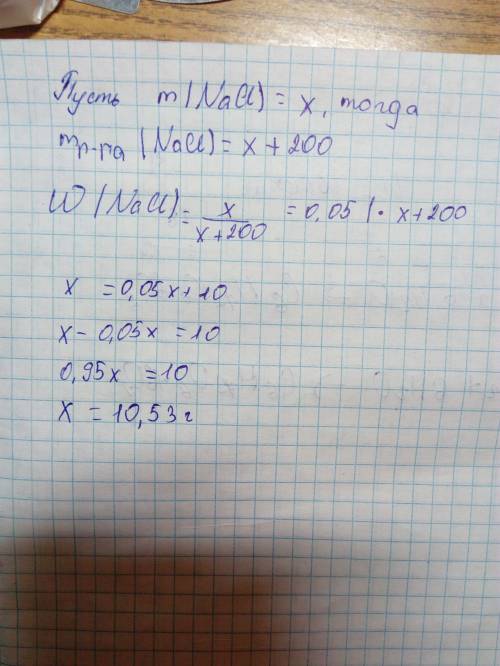 Пусть m(NaCl) = x, тогда
mр-ра (NaCl) = x + 200
W (NaCl) = x/(x+200) = 0,05 |· x+200
x = 0,05x + 10
x - 0,05x = 10
0,95x = 10
x = 10,53 г